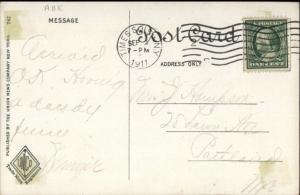 ABK
MESSAGE
Post Card
ADDRESS ONLY
TIMES SQ
SEP
7-PM
1911
N.Y.
ONE CENT
PUBLISHED BY THE UNION NEWS COMPANY NEW YORK.
742
Arrived
O.K. Having
a dandy
time
25 Lawn Ave
Portland
Me